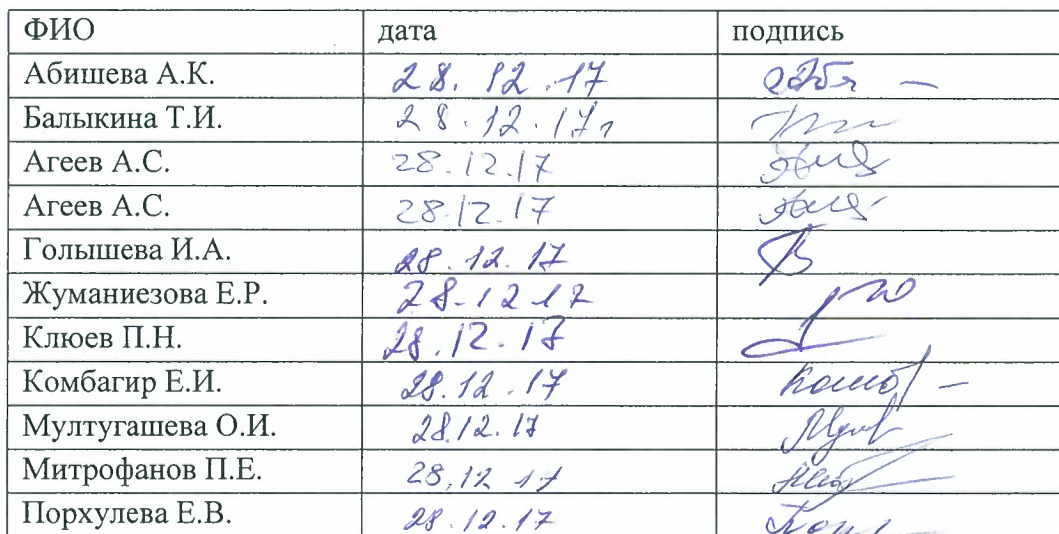 ФИО дата подпись
Абишева А.К. 28.12.17
Балыкина Т.И. 28.12.17г
Агеев А.С. 28.12.17
Агеев А.С. 28.12.17
Голышева И.А. 28.12.17
Жуманиезова Е.Р. 28.12.17
Клюев П.Н. 28.12.17
Комбагир Е.И. 28.12.17
Мултугашева О.И. 28.12.17
Митрофанов П.Е. 28.12.17
Порхулева Е.В. 28.12.17